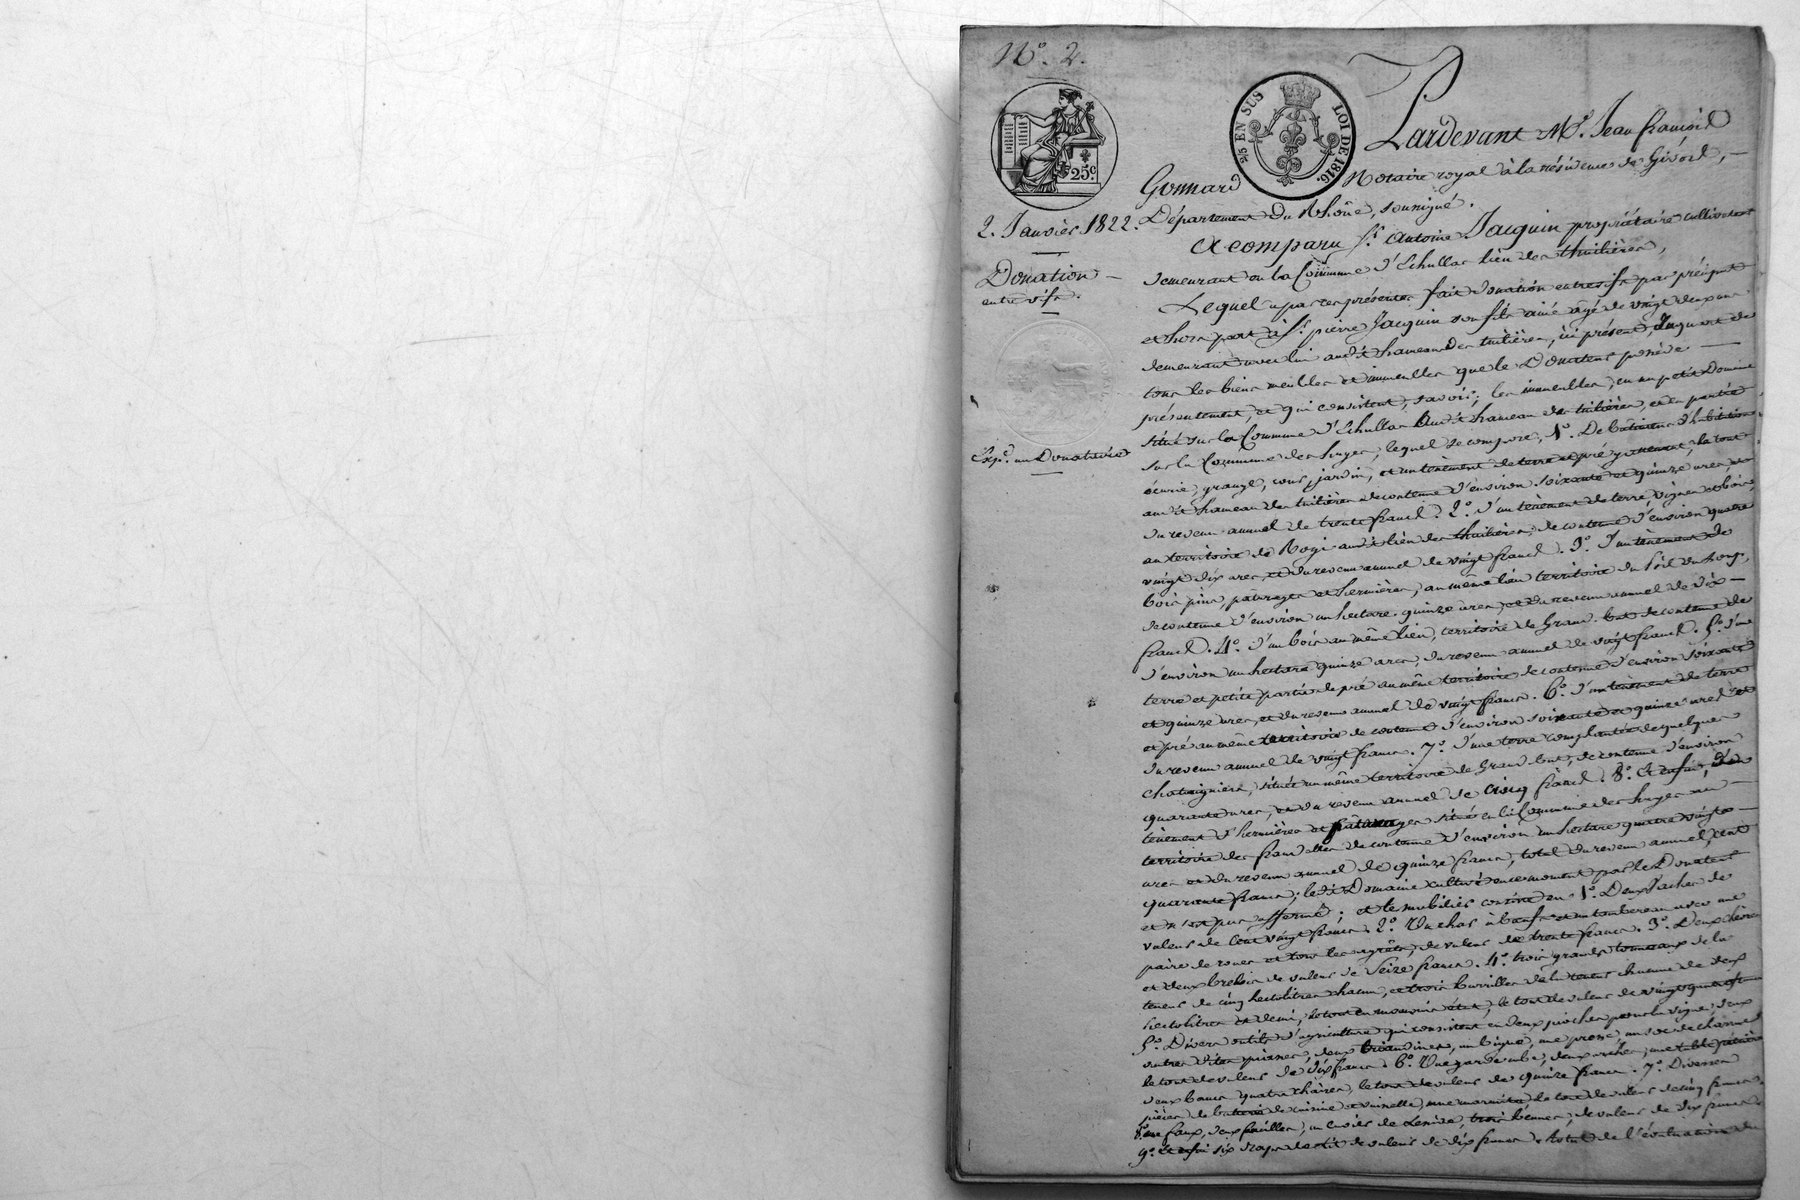 N.º 2.
25 c.
2/5 EN SUS
LOI DE 1816.
2. Janvier 1822.
Donation
entre vifs.
Exp.é au Donataire
Pardevant M.e Jean françois
Gonnard Notaire royal à la résidence de Givors,
Département du Rhône, soussigné.
A comparu S.r Antoine Jacquin propriétaire cultivateur
demeurant en la Commune d'Echallas lieu des thuilières,
Lequel a par ces présentes fait donation entrevifs par préciput
et hors part à S.r pierre Jacquin son fils ainé agé de vingt deux ans
demeurant avec lui audit hameau des tuilières, ici présent, Du quart de
tous les biens meubles et immeubles que le Donateur possède
présentement, et qui consistent, savoir; les immeubles, en un petit Domaine
situé sur la Commune d'Echallas audit hameau des tuilières, et en partie
sur la Commune des hayes, lequel se compose, 1.º De bâtimens d'habitation
écurie, grange, cour, jardin, et un tènement de terre et pré y attenant, le tout
audit hameau des tuilières de contenue d'environ soixante et quinze ares, et
du revenu annuel de trente francs. 2.º d'un tènement de terre, vignes et bois,
au territoire de audit lieu des thuilières, de contenue d'environ quatre
vingt dix ares, et du revenu annuel de vingt francs. 3.º d'un tènement de
bois pins, pâturages et hermières, au même lieu territoire du
de contenue d'environ un hectare quinze ares, et du revenu annuel de dix
francs. 4.º d'un bois au même lieu, territoire de Grand de contenue
d'environ un hectare quinze ares, du revenu annuel de vingt francs. 5.º d'une
terre et petite partie de pré au même territoire de contenue d'environ soixante
et quinze ares, et du revenu annuel de vingt francs. 6.º d'un tènement de terre
et pré au même territoire de contenue d'environ soixante et quinze ares et
du revenu annuel de vingt francs. 7.º d'une terre complantée de quelques
chataigniers, située au même territoire de Grand de contenue d'environ
quarante ares, et du revenu annuel de cinq francs. 8.º Et enfin, d'un
tènement d'hermières et pâturages situé en la Commune des hayes au
territoire des de contenue d'environ un hectare quatre vingts
ares et du revenu annuel de quinze francs, total du revenu annuel, cent
quarante francs; ledit Domaine cultivé en ce moment par le Donateur
et n'est pas affermé; et le mobilier consiste en 1.º Deux vaches de
valeur de Cent vingt francs. 2.º Un char à bœufs et un tombereau avec une
paire de roues et tous les agrêts, de valeur de trente francs. 3.º Deux chèvres
et deux brebis de valeur de Seize francs. 4.º trois grands tonneaux de la
teneur de cinq hectolitres chacun, et trois barrilles de la teneur chacune de deux
hectolitres et demi, le tout en mauvais état, le tout de valeur de vingt quatre f.
5.º Divers outils d'agriculture qui consistent en deux pioches pour la vigne, deux
autres dites deux triandines, un bigue, une presse, un soc de charrue
le tout de valeur de dix francs. 6.º Une garderobe, deux arches, une table pétrière
deux bancs quatre chaises, le tout de valeur de quinze francs. 7.º Diverses
pièces de batterie de cuisine et vaisselle, une marmite le tout de valeur de cinq francs.
8.º une faux, deux faucilles, un cuvier de lessive, trois bennes, de valeur de dix francs
9.º Et enfin six draps de lit de valeur de dix francs. total de l'évaluation du